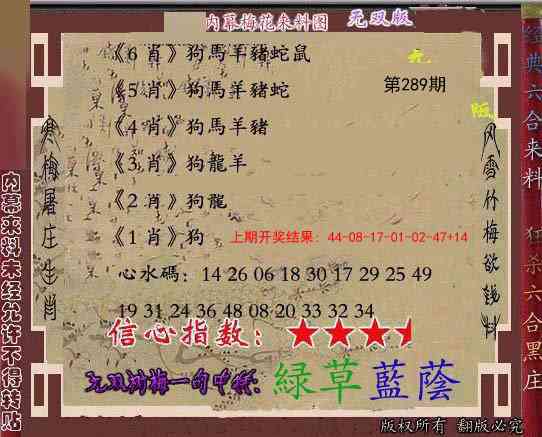 内幕梅花来料图 无双版
《6 肖》狗馬羊豬蛇鼠
《5 肖》狗馬羊豬蛇
第289期
《4 肖》狗馬羊豬
《3 肖》狗龍羊
《2 肖》狗龍
《1 肖》狗
上期开奖结果：44-08-17-01-02-47+14
心水碼：14 26 06 18 30 17 29 25 49
19 31 24 36 48 08 20 33 32 34
信心指数：★★★
綠草藍蔭
版权所有 翻版必究
寒梅屠庄生肖
内幕来料未经允许不得转贴
风雪竹梅欲钱料
经典六合来料
狂杀六合黑庄